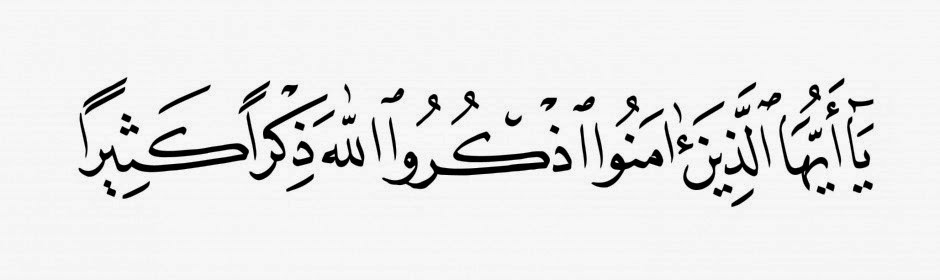 يَٰٓأَيُّهَا ٱلَّذِينَ ءَامَنُوا ٱذْكُرُوا ٱللَّهَ ذِكْرًا كَثِيرًا